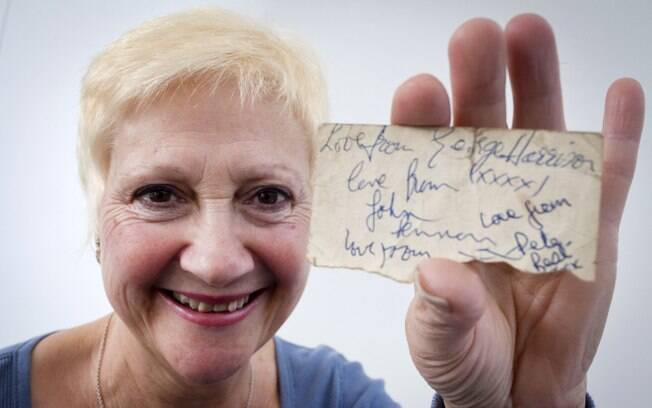 Love from George Harrison
love from (xxxx)
John
Lennon
love from
Love from
Pete
Best